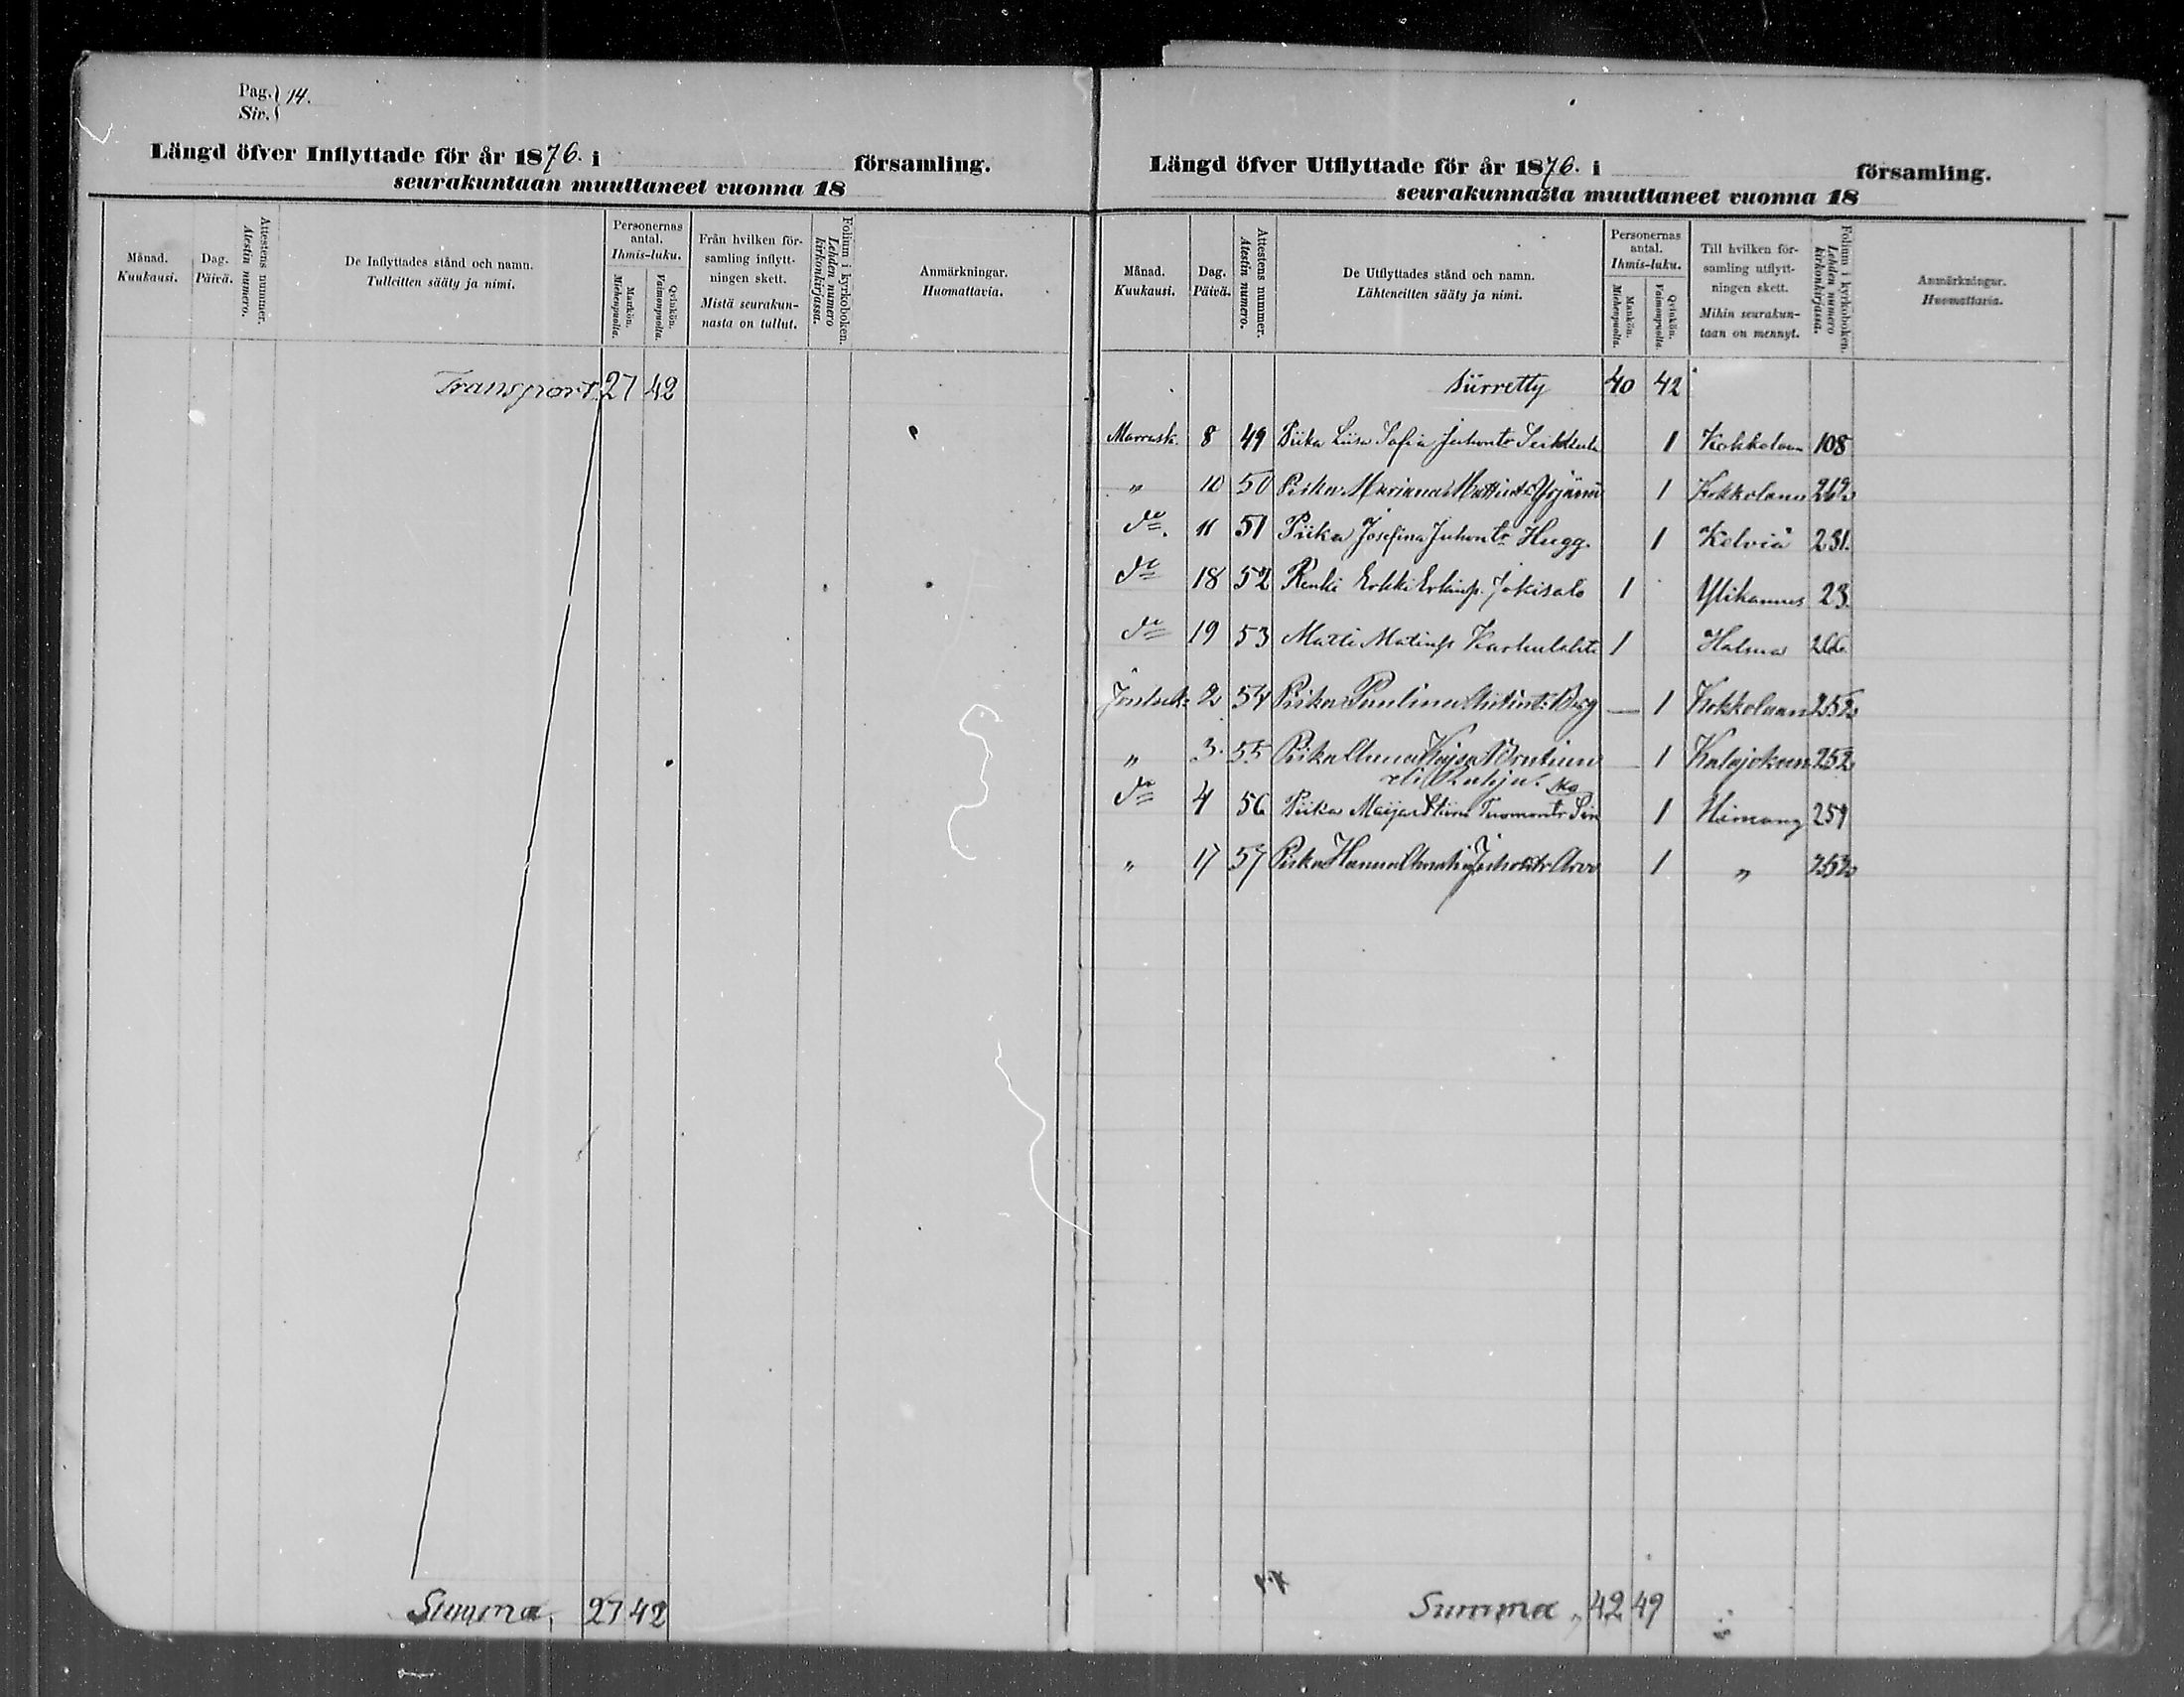 Pag. 14.
Siv.
Längd öfver Inflyttade för år 1876. i församling.
seurakuntaan muuttaneet vuonna 18
Månad. Kuukausi.
Dag. Päivä.
Attestens nummer. Atestin numero.
De Inflyttades stånd och namn.
Tulleitten sääty ja nimi.
Personernas antal.
Ihmis-luku.
Mankön. Miehenpuolia.
Qvinkön. Vaimonpuolia.
Från hvilken för-
samling inflytt-
ningen skett.
Mistä seurakun-
nasta on tullut.
Folium i kyrkoboken.
Lehden numero
kirkonkirjassa.
Anmärkningar.
Huomattavia.
Transport 27 42
Summa, 27 42
Längd öfver Utflyttade för år 1876. i församling.
seurakunnasta muuttaneet vuonna 18
Månad. Kuukausi.
Dag. Päivä.
Attestens nummer. Atestin numero.
De Utflyttades stånd och namn.
Lähteneitten sääty ja nimi.
Personernas antal.
Ihmis-luku.
Mankön. Miehenpuolia.
Qvinkön. Vaimonpuolia.
Till hvilken för-
samling utflytt-
ningen skett.
Mihin seurakun-
taan on mennyt.
Folium i kyrkoboken.
Lehden numero
kirkonkirjassa.
Anmärkningar.
Huomattavia.
Siirretty 40 42
Marrask. 8 49 Piika Liisa Sofia Juhontr 1 Kokkolaan 108
" 10 50 Piika Mariana Mattintr Yrjänä 1 Kokkolaan 262
do. 11 51 Piika Josefina Juhontr Hugg. 1 Kelviå 231.
do 18 52 Renki Erkki Erkinp. Jokisalo 1 Ylikannus 23.
do 19 53 Matti Matinp 1 Halsua 266
Jouluk: 2 54 Piika Paulina Antint: Berg — 1 Kokkolaan 252
" 3. 55 Piika Anna Kajsa 1 Kalajokeen 252
do 4 56 Piika Maija Stiina Tuomontr 1 Himang 259
" 17 57 Piika Hanna Juhontr Arvo 1 " 253
Summa, 42 49